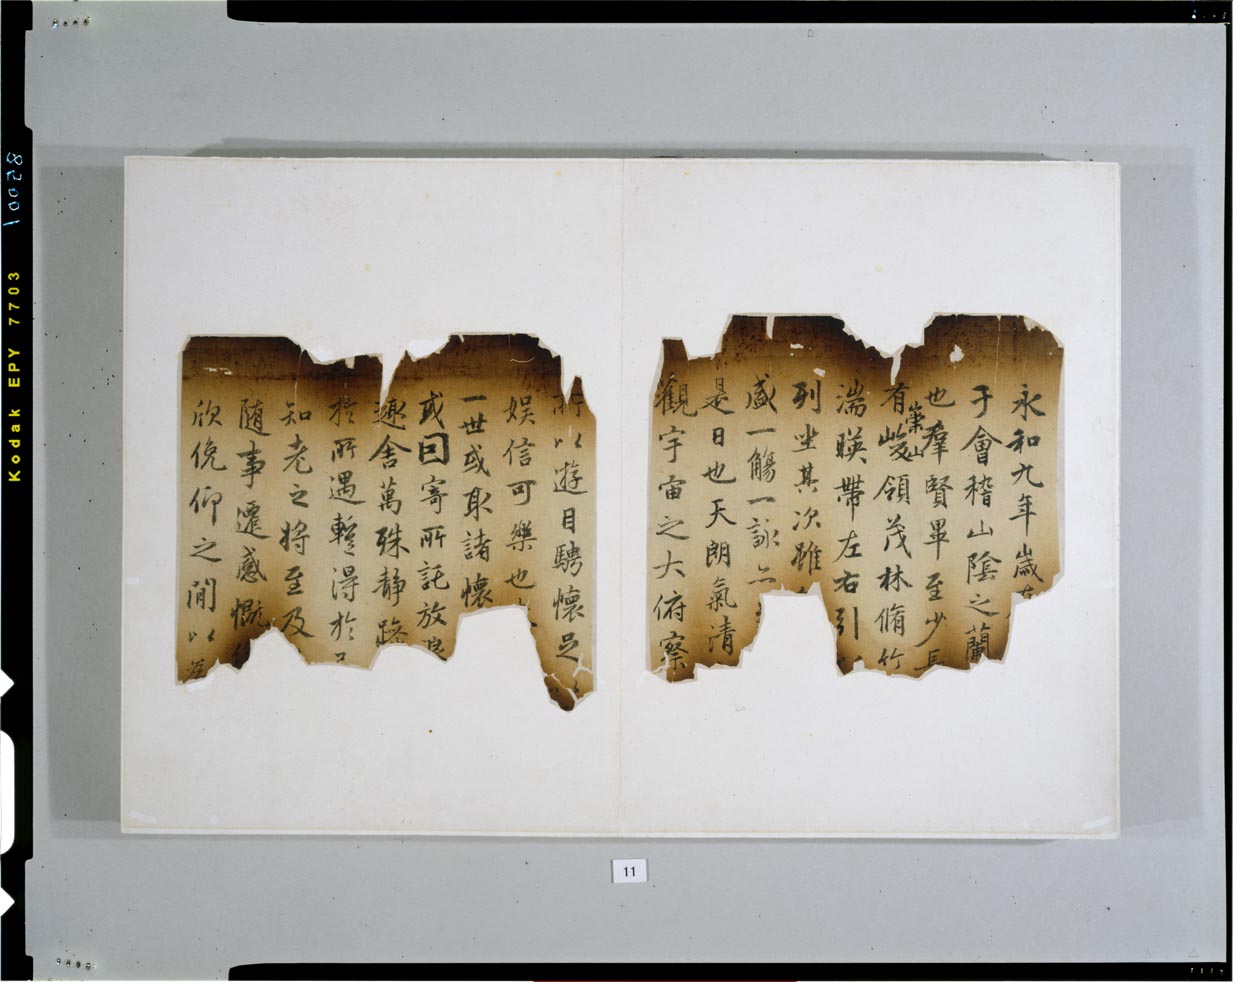 永和九年歲在
于會稽山陰之蘭
也羣賢畢至少長
有崇山峻領茂林脩竹
湍暎帶左右引
列坐其次雖
盛一觴一詠
是日也天朗氣清
觀宇宙之大俯察
所以遊目騁懷足
娛信可樂也
一世或取諸懷
或因寄所託放浪
趣舍萬殊静躁
於所遇蹔得於
知老之將至及
随事遷感慨
欣俛仰之閒以為
11
Kodak EPY 7703
10028